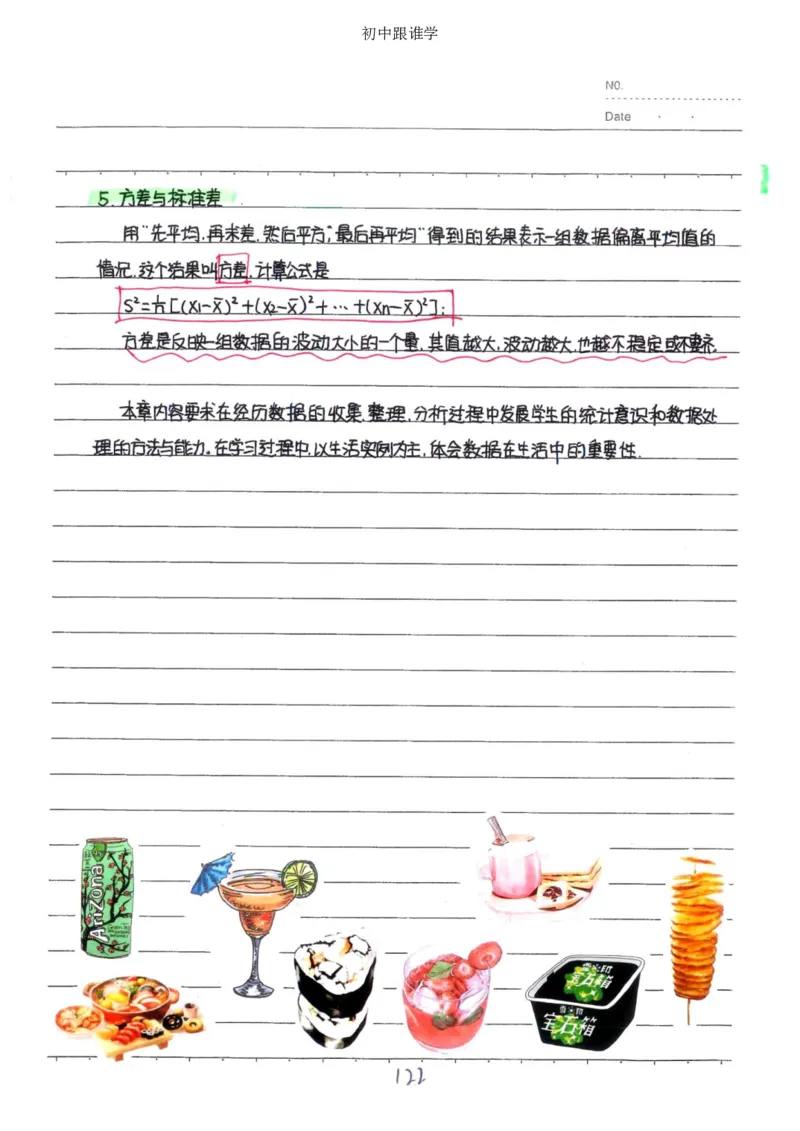 初中跟谁学
NO.
Date
5.方差与标准差
用"先平均,再求差,然后平方,最后再平均"得到的结果表示一组数据偏离平均值的
情况,这个结果叫方差,计算公式是
S²=1/n[(x₁-x̄)²+(x₂-x̄)²+…+(xn-x̄)²];
方差是反映一组数据的波动大小的一个量,其值越大,波动越大,也越不稳定或不整齐.
本章内容要求在经历数据的收集,整理,分析过程中发展学生的统计意识和数据处
理的方法与能力。在学习过程中,以生活实例为主,体会数据在生活中的重要性.
Arizona
宝石箱
宝石箱
122